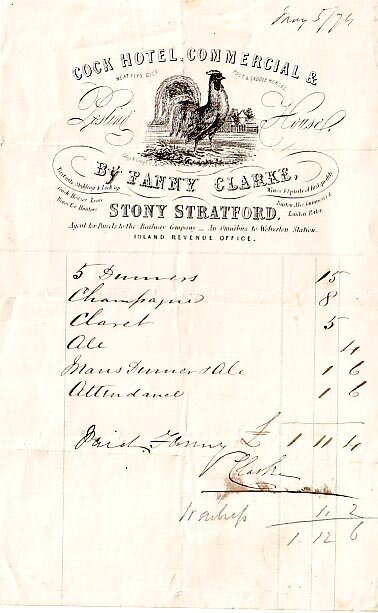 May 5/76
COCK HOTEL, COMMERCIAL &
NEAT FLYS, GIGS
POST & SADDLE HORSES.
Posting House.
By FANNY CLARKE,
Excellent Stabling & Lock up
Coach Houses Loose
Boxes for Hunters.
Wines & Spirits of first quality
Burton Ales, Guinness's &
London Porter.
STONY STRATFORD.
Agent for Parcels to the Railway Company — An Omnibus to Wolverton Station.
INLAND REVENUE OFFICE.
5 Dinners 15
Champagne 8
Claret 5
Ale 4
Mans Dinner & Ale 1 6
Attendance 1 6
Paid Fanny £ 1 11 4
Clarke
1. 2
1. 12 6